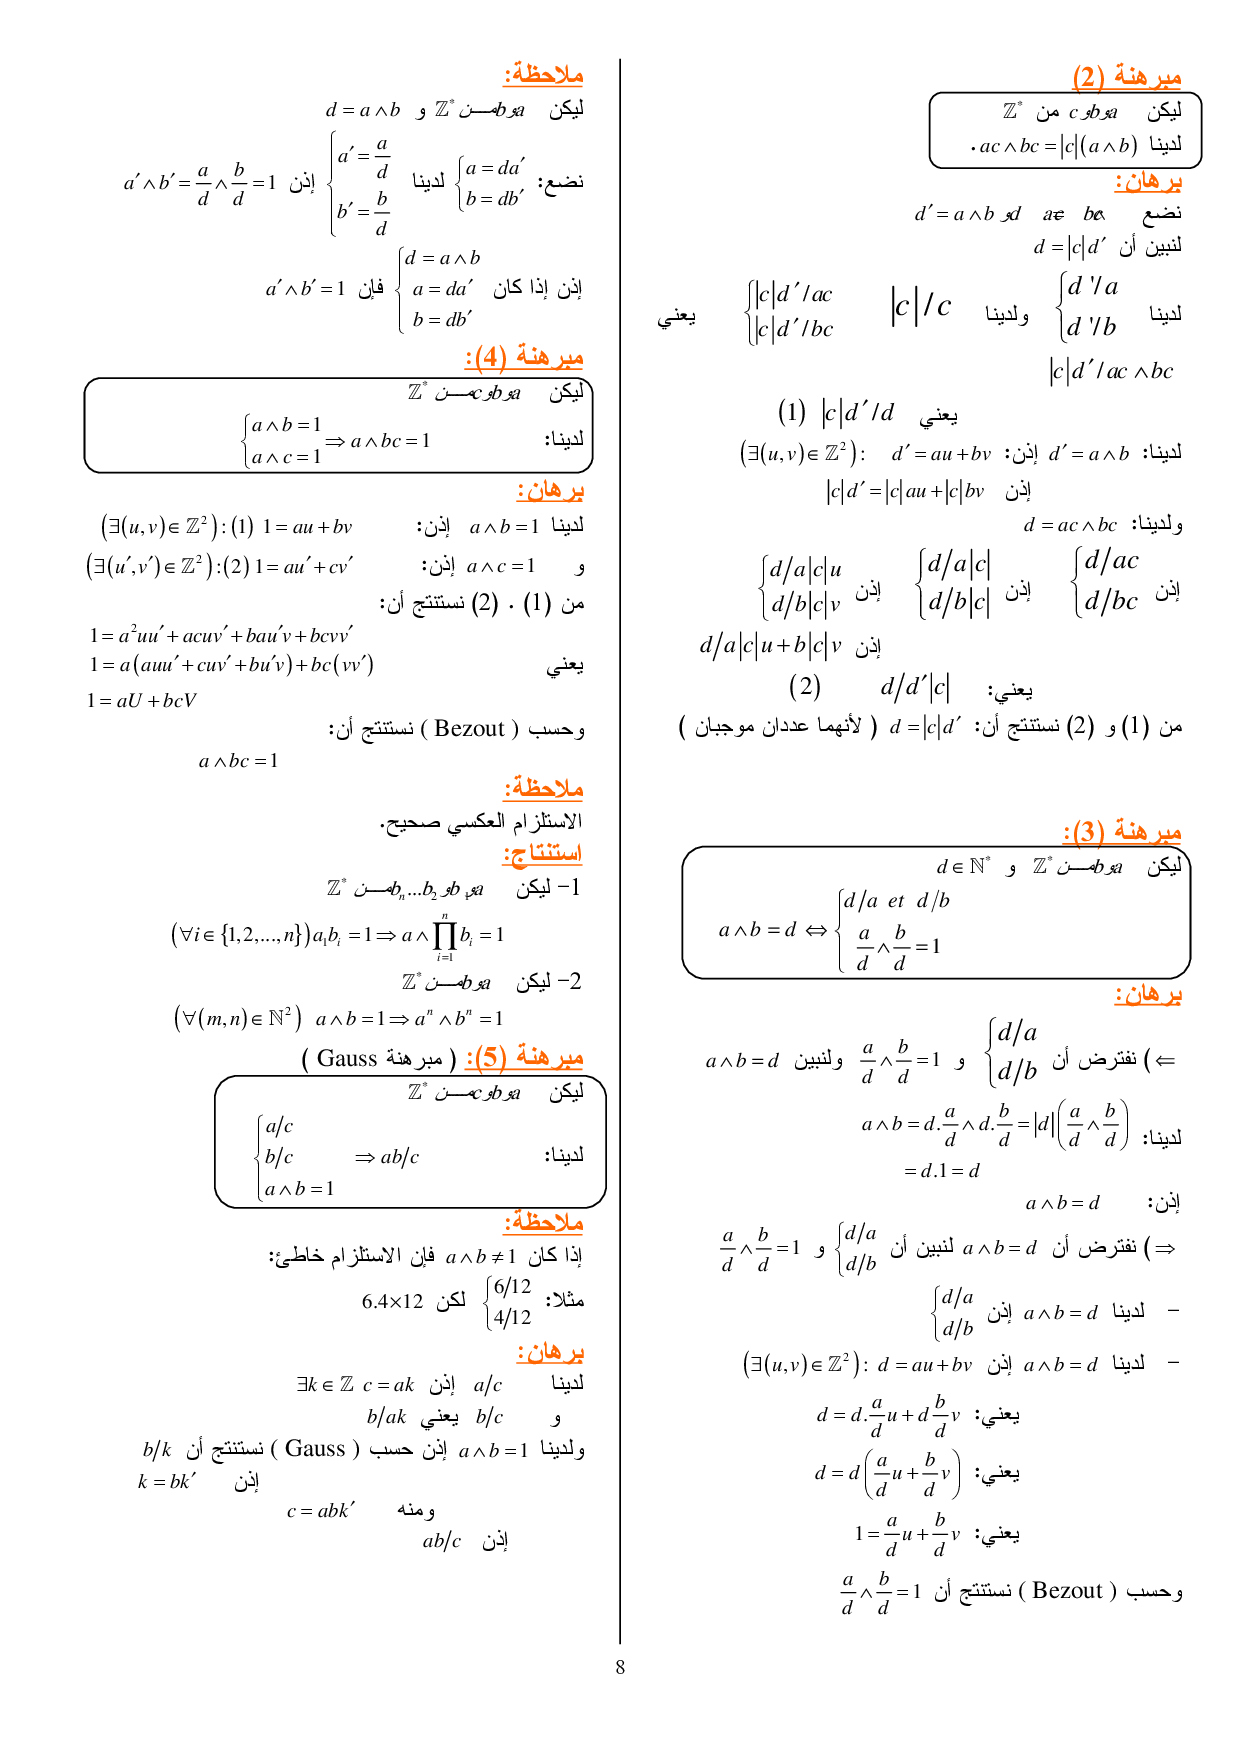 مبرهنة (2)
ليكن a و b و c من ℤ*
لدينا ac∧bc = |c|(a∧b) .
برهان:
نضع d = ac∧bc و d′ = a∧b
لنبين أن d = |c|d′
لدينا {d'/a , d'/b ولدينا |c|/c {|c|d′/ac , |c|d′/bc يعني
|c|d′/ac∧bc
يعني |c|d′/d (1)
لدينا: d′ = a∧b إذن: (∃(u,v)∈ℤ²): d′ = au+bv
إذن |c|d′ = |c|au+|c|bv
ولدينا: d = ac∧bc
إذن {d/ac , d/bc إذن {d/a|c| , d/b|c| إذن {d/a|c|u , d/b|c|v
إذن d/a|c|u+b|c|v
يعني: d/d′|c| (2)
من (1) و (2) نستنتج أن: d = |c|d′ ( لأنهما عددان موجبان )
مبرهنة (3):
ليكن a و b مـــن ℤ* و d∈ℕ*
a∧b = d ⇔ {d/a et d/b , a/d ∧ b/d = 1
برهان:
⇐) نفترض أن {d/a , d/b و a/d ∧ b/d = 1 ولنبين a∧b = d
لدينا: a∧b = d.a/d ∧ d.b/d = |d|(a/d ∧ b/d)
= d.1 = d
إذن: a∧b = d
⇒) نفترض أن a∧b = d لنبين أن {d/a , d/b و a/d ∧ b/d = 1
- لدينا a∧b = d إذن {d/a , d/b
- لدينا a∧b = d إذن (∃(u,v)∈ℤ²): d = au+bv
يعني: d = d.a/d u + d b/d v
يعني: d = d(a/d u + b/d v)
يعني: 1 = a/d u + b/d v
وحسب ( Bezout ) نستنتج أن a/d ∧ b/d = 1
ملاحظة:
ليكن a و b مـــن ℤ* و d = a∧b
نضع: {a = da′ , b = db′ لدينا {a′ = a/d , b′ = b/d إذن a′∧b′ = a/d ∧ b/d = 1
إذن إذا كان {d = a∧b , a = da′ , b = db′ فإن a′∧b′ = 1
مبرهنة (4):
ليكن a و b و c مـــن ℤ*
لدينا: {a∧b = 1 , a∧c = 1 ⇒ a∧bc = 1
برهان:
لدينا a∧b = 1 إذن: (∃(u,v)∈ℤ²):(1) 1 = au+bv
و a∧c = 1 إذن: (∃(u′,v′)∈ℤ²):(2) 1 = au′+cv′
من (1) . (2) نستنتج أن:
1 = a²uu′+acuv′+bau′v+bcvv′
يعني 1 = a(auu′+cuv′+bu′v)+bc(vv′)
1 = aU+bcV
وحسب ( Bezout ) نستنتج أن:
a∧bc = 1
ملاحظة:
الاستلزام العكسي صحيح.
استنتاج:
1- ليكن a و b₁ و b₂...bₙ مـــن ℤ*
(∀i∈{1,2,...,n}) a₁bᵢ = 1 ⇒ a∧∏ᵢ₌₁ⁿ bᵢ = 1
2- ليكن a و b مـــن ℤ*
(∀(m,n)∈ℕ²) a∧b = 1 ⇒ aⁿ∧bⁿ = 1
مبرهنة (5): ( مبرهنة Gauss )
ليكن a و b و c مـــن ℤ*
لدينا: {a/c , b/c , a∧b = 1 ⇒ ab/c
ملاحظة:
إذا كان a∧b ≠ 1 فإن الاستلزام خاطئ:
مثلا: {6/12 , 4/12 لكن 6.4×12
برهان:
لدينا a/c إذن ∃k∈ℤ c = ak
و b/c يعني b/ak
ولدينا a∧b = 1 إذن حسب ( Gauss ) نستنتج أن b/k
إذن k = bk′
ومنه c = abk′
إذن ab/c
8